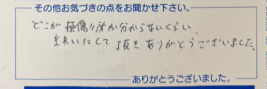 その他お気づきの点をお聞かせ下さい。
どこが損傷ヶ所か分からないくらい、
きれいにして頂きありがとうございました。
ありがとうございました。